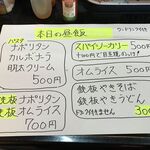 本日の昼飯
ワンドリンク付
パスタ
ナポリタン
カルボナーラ
明太クリーム
500円
鉄板ナポリタン
鉄板オムライス
700円
スパイシーカリー 500円
オムライス 500円
鉄板やきそば
鉄板やきうどん